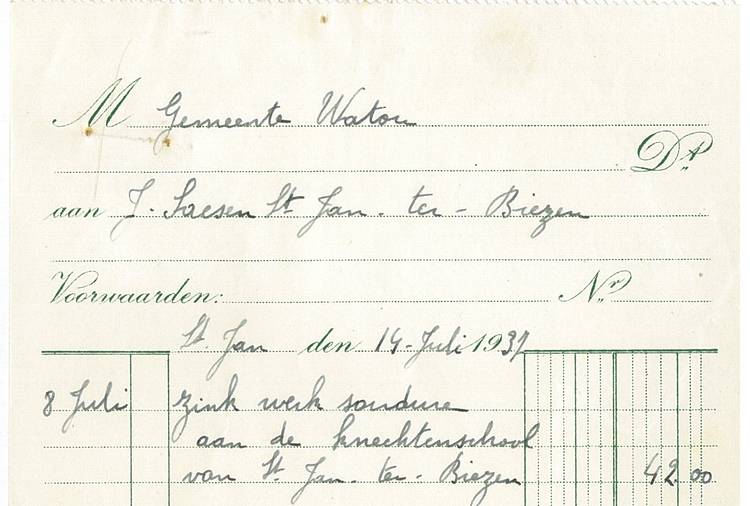 M Gemeente Watou
Dt
aan J. Saesen St Jan. ter - Biezen
Voorwaarden: Nr
St. Jan den 14 - Juli 1937
8 Juli zink werk soudure
aan de knechtenschool
van St. Jan. ter. Biezen 42.00